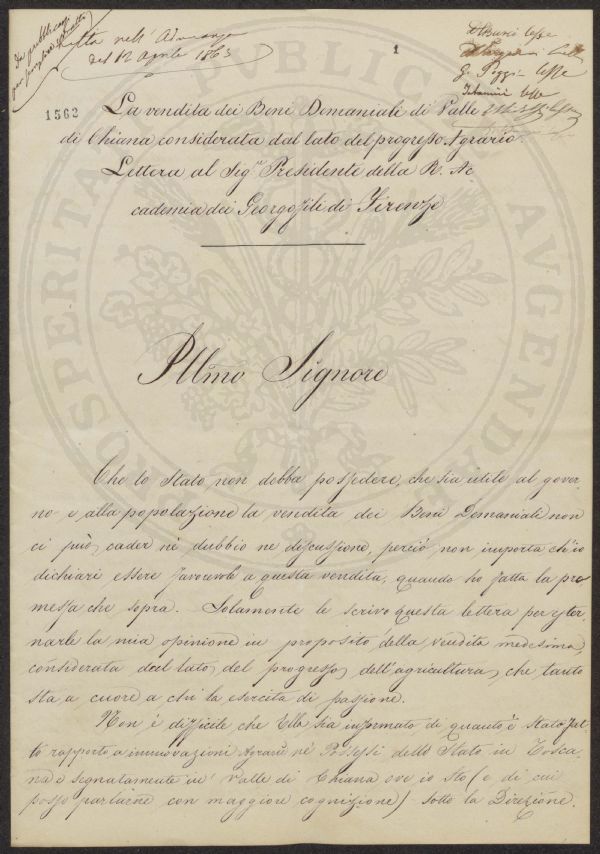 Da pubblicarsi
per
Letta nell'Adunanza
del 12 Aprile 1863
1
D Buri lesse
G. Poggi lesse
lesse
1562
La vendita dei Beni Demaniali di Valle
di Chiana considerata dal lato del progresso Agrario.
Lettera al Sigr. Presidente della R. Ac
cademia dei Georgofili di Firenze
Illmo Signore
Che lo Stato non debba possedere, che sia utile al gover-
no e alla popolazione la vendita dei Beni Demaniali non
ci può cader nè dubbio ne discussione, perciò non importa ch'io
dichiari essere favorevole a questa vendita, quando ho fatta la pre
messa che sopra. Solamente le scrivo questa lettera per ester-
narle la mia opinione in proposito della vendita medesima,
considerata dal lato del progresso dell'agricoltura, che tanto
sta a cuore a chi la esercita di passione.
Non è difficile che Ella sia informato di quanto è stato fat-
to rapporto a innovazioni Agrarie ne' Possessi dello Stato in Tosca-
na e segnatamente in Valle di Chiana ove io sto (e di cui
posso parlarne con maggiore cognizione) sotto la Direzione.
PVBLICAE
PROSPERITATI
AVGENDAE